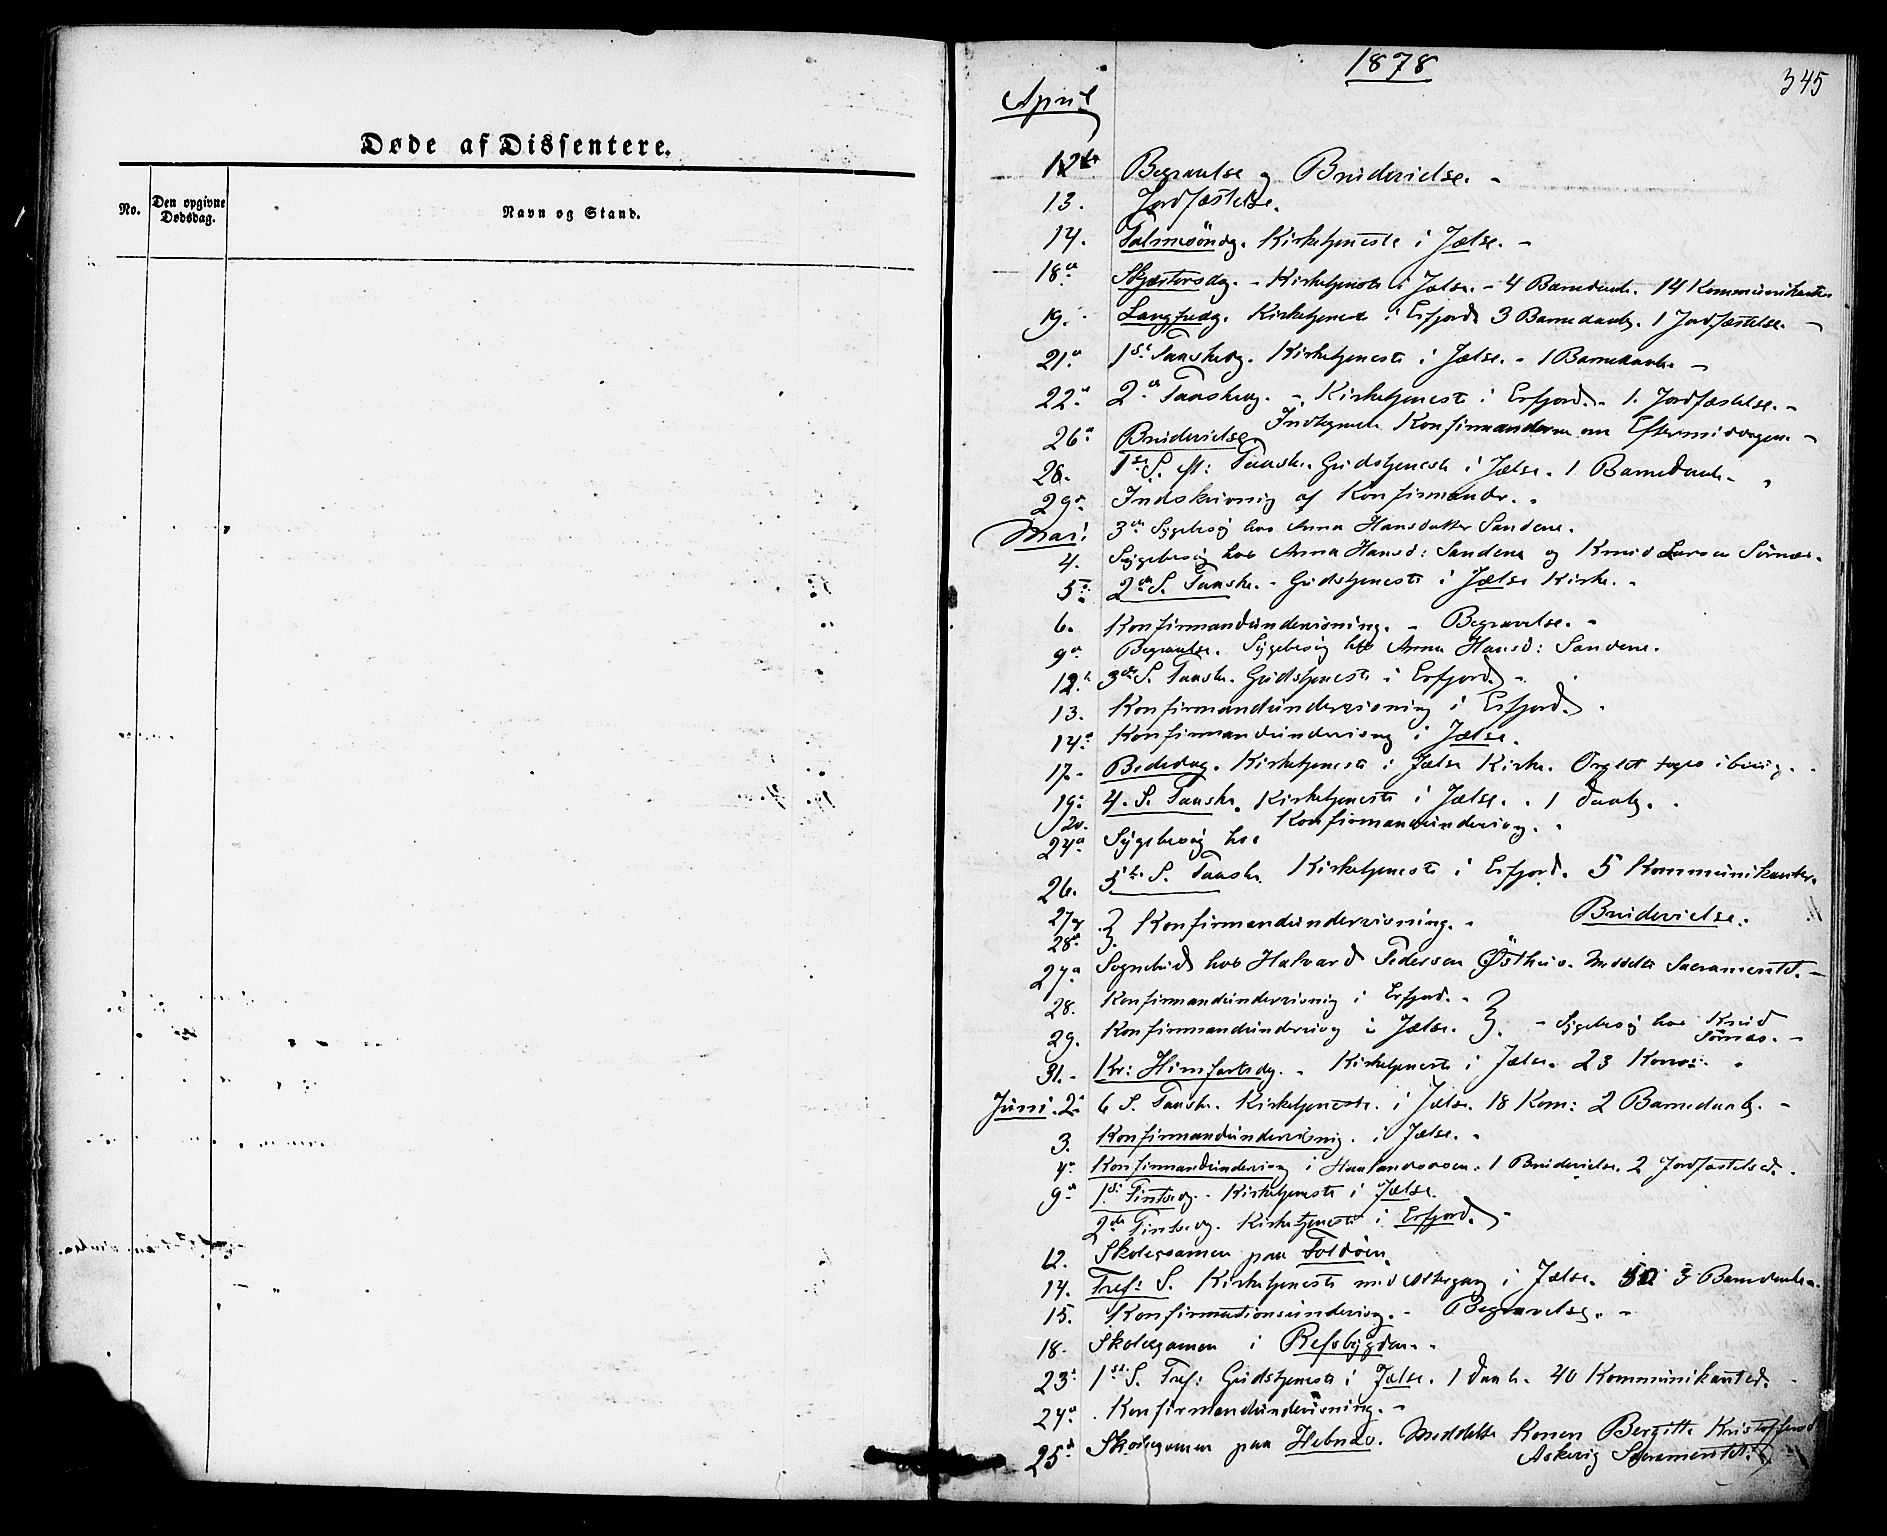 Døde af Dissentere.
No.
Den opgivne Dødsdag.
Navn og Stand.
1878
345
April
12te Begravelse og Brudevielse. -
13. Jordfæstelse.
14. Palmesöndg. Kirketjeneste i Jælse. -
18de Skjærtorsdag. - Kirketjeneste i Jælse. - 4 Barnedaab. 14 Kommunikanter
19. Langfredg. Kirketjeneste i Erfjord 3 Barnedaab. 1 Jordfæstelse. -
21de 1ste Paaskedg. Kirketjeneste i Jælse. - 1 Barnedaab. -
22de 2den Paaskedg. - Kirketjeneste i Erfjord. - 1 Jordfæstelse. -
Indtegnede Konfirmanderne om Eftermiddagen. -
26de Brudevielse
28. 1ste S. e: Paaske. Gudstjeneste i Jælse. 1 Barnedaab. -
29de Indskrivning af Konfirmander. -
Mai: 3de Sygebesög hos Anna Hansdatter Sandene.
4. Sygebesög hos Anna Hansd: Sandene og Knud Larsen Sörnæs.
5te 2den S. Paaske. - Gudstjeneste i Jælse Kirke. -
6. Konfirmandundervisning. - Begravelse. -
9de Begravelse. Sygebesög hos Anna Hansd: Sandene.
12te 3die S. Paaske. Gudstjeneste i Erfjord. -
13. Konfirmandundervisning i Erfjord. -
14de Konfirmandundervisng i Jælse.
17. - Bededag. Kirketjeneste i Jælse Kirke. Orglet toges i brug. -
19de 4. S. Paaske. Kirketjeneste i Jælse. - 1 Daab. -
20. Konfirmandundervisng. -
24de Sygebesög hos
26. 5te S. Paaske. Kirketjeneste i Erfjord. 5 Kommunikanter.
27 og 28de } Konfirmandundervisning. - Brudevielse.
27de Sognebud hos Halvard Pedersen Östhus. Meddelte Sacramentet. -
28. Konfirmandundervisnig i Erfjord. -
29. Konfirmandundervisng i Jælse. } - Sygebesög hos Knud
Sörnæs. -
31. - Kr: Himfartsdg. - Kirketjeneste i Jælse. 23 Kom: -
Juni. 2. 6 S. Paaske. Kirketjeneste i Jælse. 18 Kom: 2 Barnedaab. -
3. Konfirmandundervisnig. i Jælse. -
4de Konfirmandundervisng i 1 Brudevielse. 2 Jordfæstelser. -
9de 1ste Pintsedg. - Kirketjeneste i Jælse.
2den Pintsedg. Kirketjeneste i Erfjord. -
12. Skoleexamen paa Foldöen.
14. Tref: S. Kirketjeneste med Altergang i Jælse. 3 Barnedaab.
15. Konfirmationsundervisng. - Begravelse. -
18. Skoleexamen i Refsbygden. -
23de 1ste S. Tref: Gudstjeneste i Jælse. 1 Daab. 40 Kommunikanter.
24de Konfirmandundervisning. -
25de Skoleexamen paa Hebnæs. Meddelte Konen Bergitte Kristoffersd
Askevig Sacramentet.